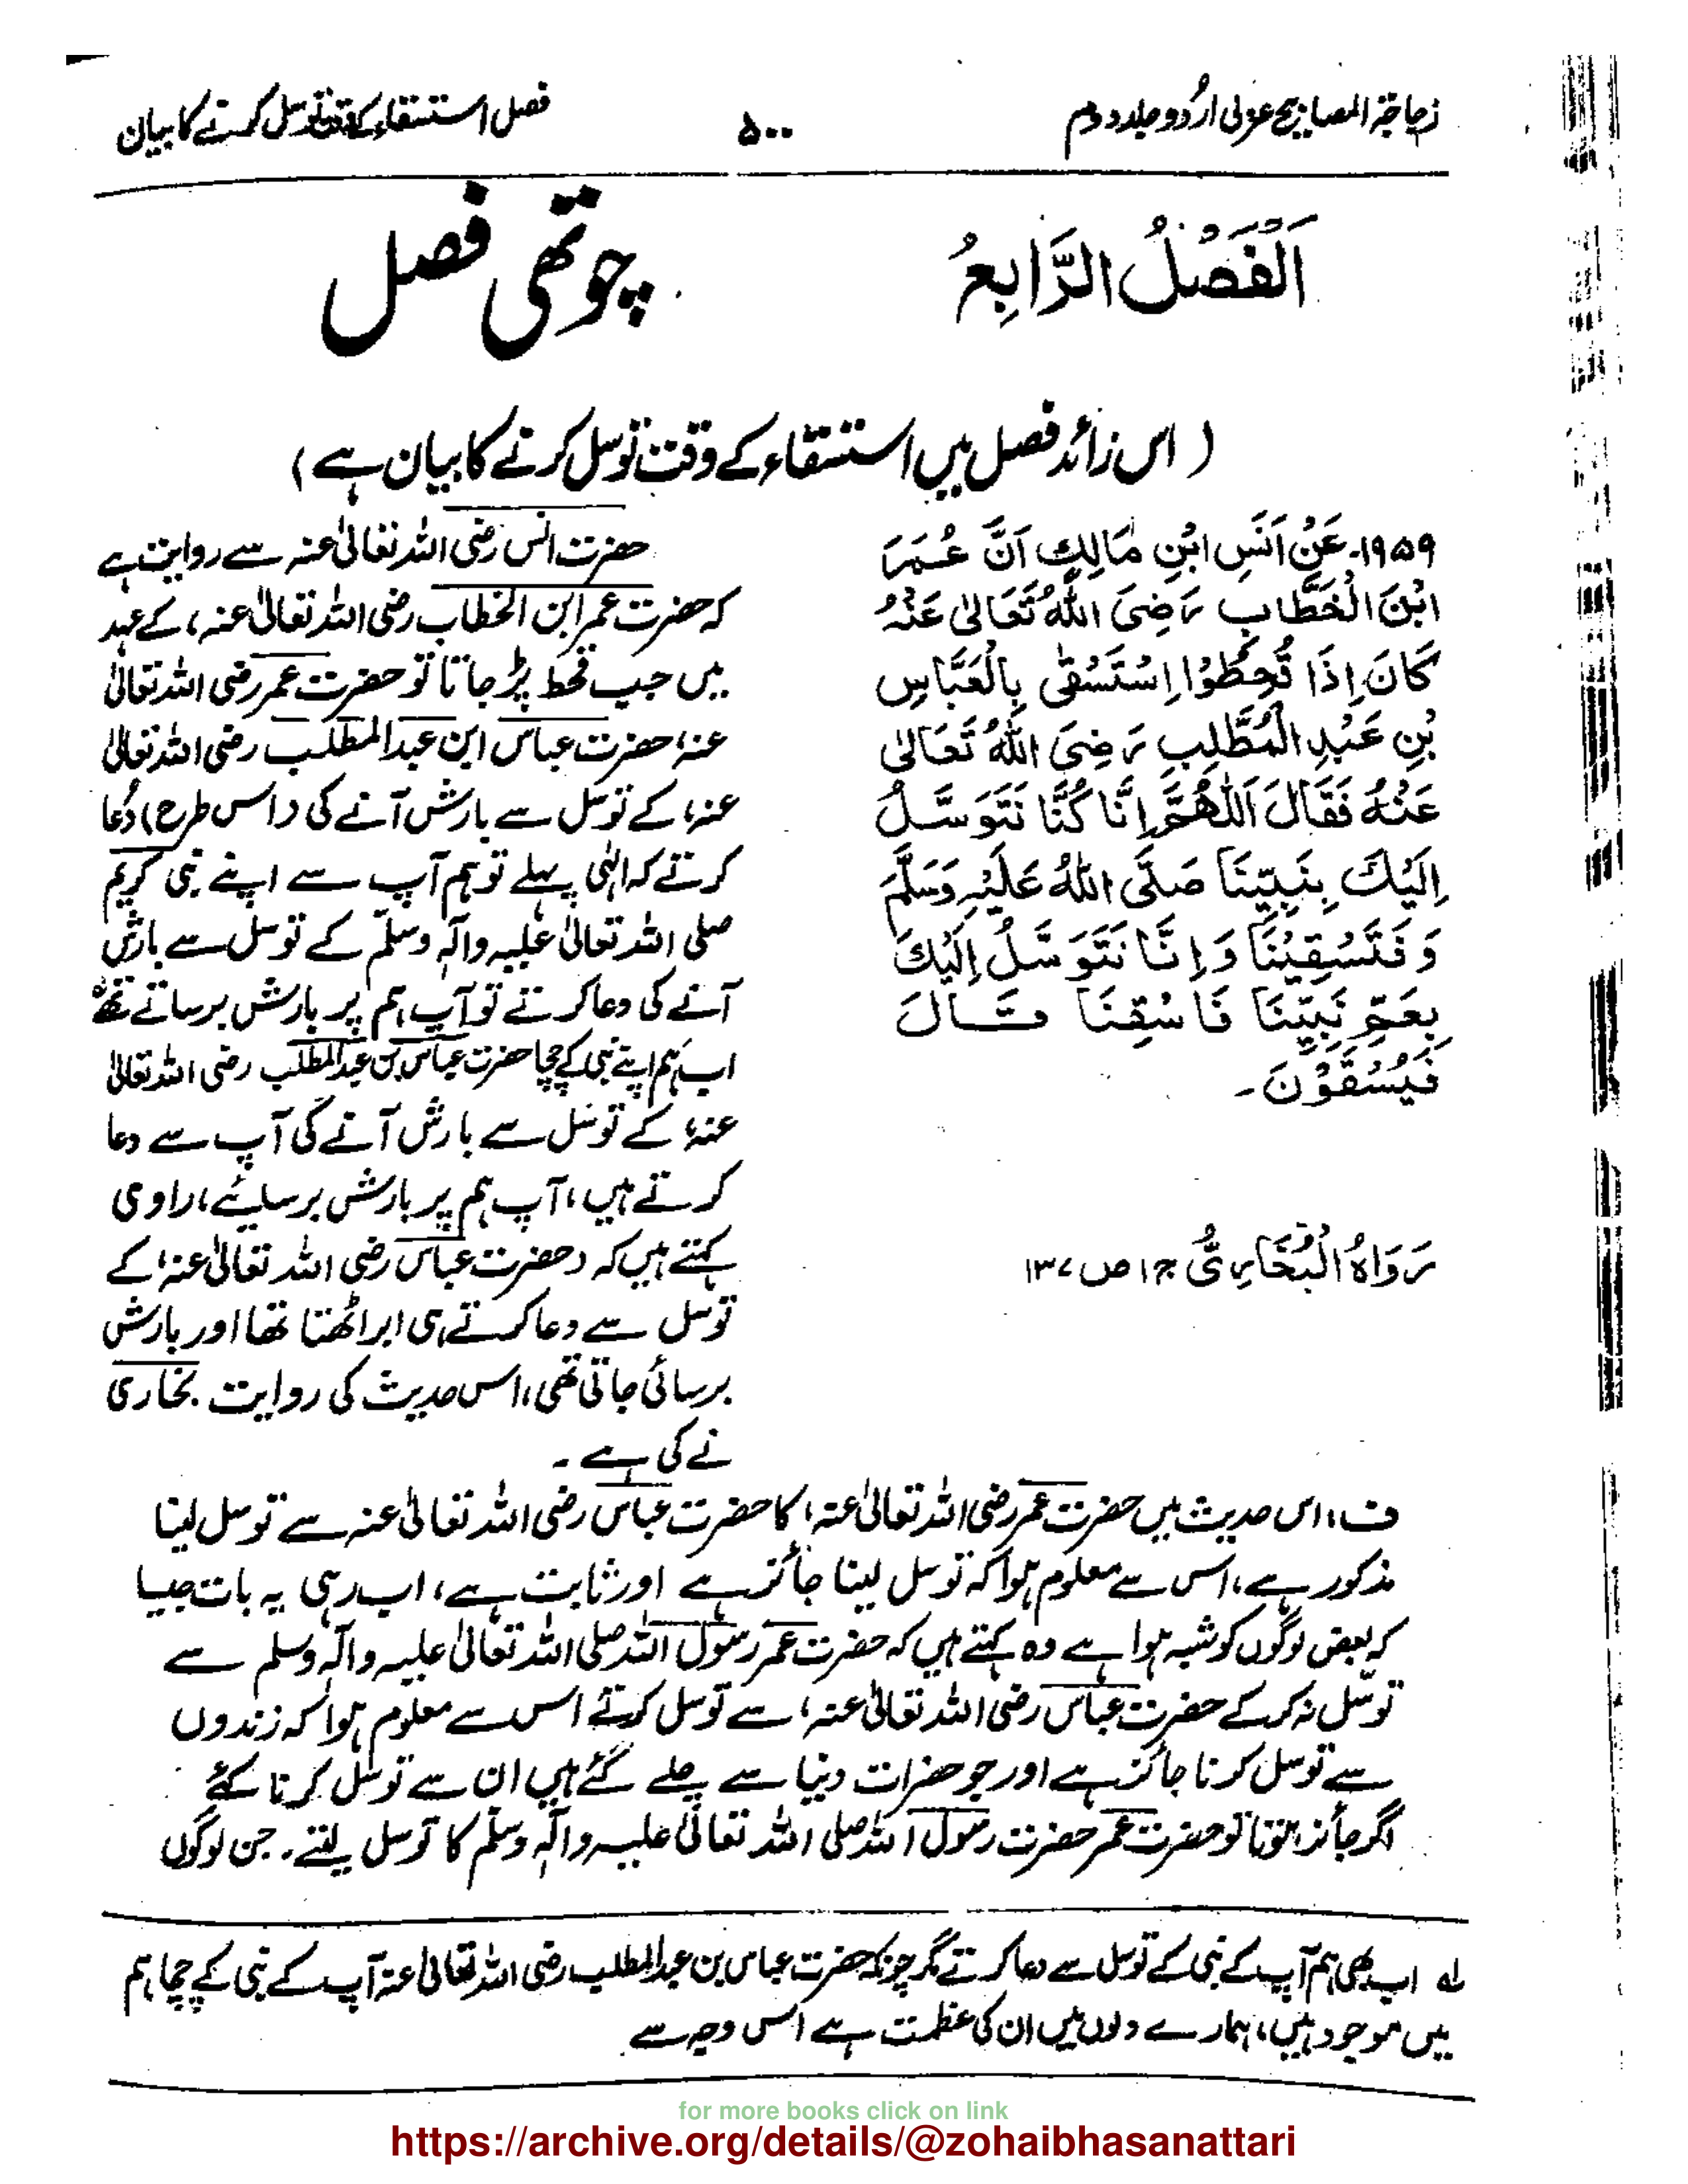 زجاجۃ المصابیح عربی اردو جلد دوم
۵۰۰
فصل استسقاء کے وقت توسل کرنے کا بیان
اَلْفَصْلُ الرَّابِعُ
چوتھی فصل
( اس زائد فصل میں استسقاء کے وقت توسل کرنے کا بیان ہے )
۱۹۵۹۔ عَنْ اَنَسِ ابْنِ مَالِكٍ اَنَّ عُمَرَ
ابْنَ الْخَطَّابِ رَضِيَ اللّٰهُ تَعَالٰى عَنْهُ
كَانَ اِذَا قُحِطُوْا اِسْتَسْقٰى بِالْعَبَّاسِ
بْنِ عَبْدِ الْمُطَّلِبِ رَضِيَ اللّٰهُ تَعَالٰى
عَنْهُ فَقَالَ اَللّٰهُمَّ اِنَّا كُنَّا نَتَوَسَّلُ
اِلَيْكَ بِنَبِيِّنَا صَلَّى اللّٰهُ عَلَيْهِ وَسَلَّمَ
وَ فَتَسْقِيْنَا وَ اِنَّا نَتَوَسَّلُ اِلَيْكَ
بِعَمِّ نَبِيِّنَا فَاسْقِنَا قَالَ
فَيُسْقَوْنَ۔
رَوَاهُ الْبُخَارِيُّ ج ۱ ص ۱۳۷
حضرت انس رضی اللہ تعالیٰ عنہ سے روایت ہے
کہ حضرت عمر ابن الخطاب رضی اللہ تعالیٰ عنہ، کے عہد
میں جب قحط پڑ جاتا تو حضرت عمر رضی اللہ تعالیٰ
عنہ، حضرت عباس ابن عبدالمطلب رضی اللہ تعالیٰ
عنہ، کے توسل سے بارش آنے کی (اس طرح) دُعا
کرتے کہ الٰہی پہلے تو ہم آپ سے اپنے نبی کریم
صلی اللہ تعالیٰ علیہ واٰلہٖ وسلّم کے توسل سے بارش
آنے کی دعا کرتے تو آپ ہم پر بارش برساتے تھے
اب ہم اپنے نبی کے چچا حضرت عباس بن عبدالمطلب رضی اللہ تعالیٰ
عنہ، کے توسل سے بارش آنے کی آپ سے دعا
کرتے ہیں، آپ ہم پر بارش برسایئے، راوی
کہتے ہیں کہ (حضرت عباس رضی اللہ تعالیٰ عنہ، کے
توسل سے دعا کرتے ہی ابر اٹھتا تھا اور بارش
برسائی جاتی تھی، اس حدیث کی روایت بخاری
نے کی ہے ۔
ف، اس حدیث میں حضرت عمر رضی اللہ تعالیٰ عنہ، کا حضرت عباس رضی اللہ تعالیٰ عنہ سے توسل لینا
مذکور ہے، اس سے معلوم ہوا کہ توسل لینا جائز ہے اور ثابت ہے، اب رہی یہ بات جیسا
کہ بعض لوگوں کو شبہ ہوا ہے وہ کہتے ہیں کہ حضرت عمر رسول اللہ صلی اللہ تعالیٰ علیہ واٰلہ وسلم سے
توسّل نہ کر کے حضرت عباس رضی اللہ تعالیٰ عنہ، سے توسل کرتے اس سے معلوم ہوا کہ زندوں
سے توسل کرنا جائز ہے اور جو حضرات دنیا سے چلے گئے ہیں ان سے توسّل کرنا
اگر جائز ہوتا تو حضرت عمر حضرت رسول اللہ صلی اللہ تعالیٰ علیہ واٰلہٖ وسلّم کا توسل لیتے۔ جن لوگوں
لہ اب بھی ہم آپ کے نبی کے توسل سے دعا کرتے مگر چونکہ حضرت عباس بن عبدالمطلب رضی اللہ تعالیٰ عنہ آپ کے نبی کے چچا ہم
میں موجود ہیں، ہمارے دلوں میں ان کی عظمت ہے اس وجہ سے
for more books click on link
https://archive.org/details/@zohaibhasanattari